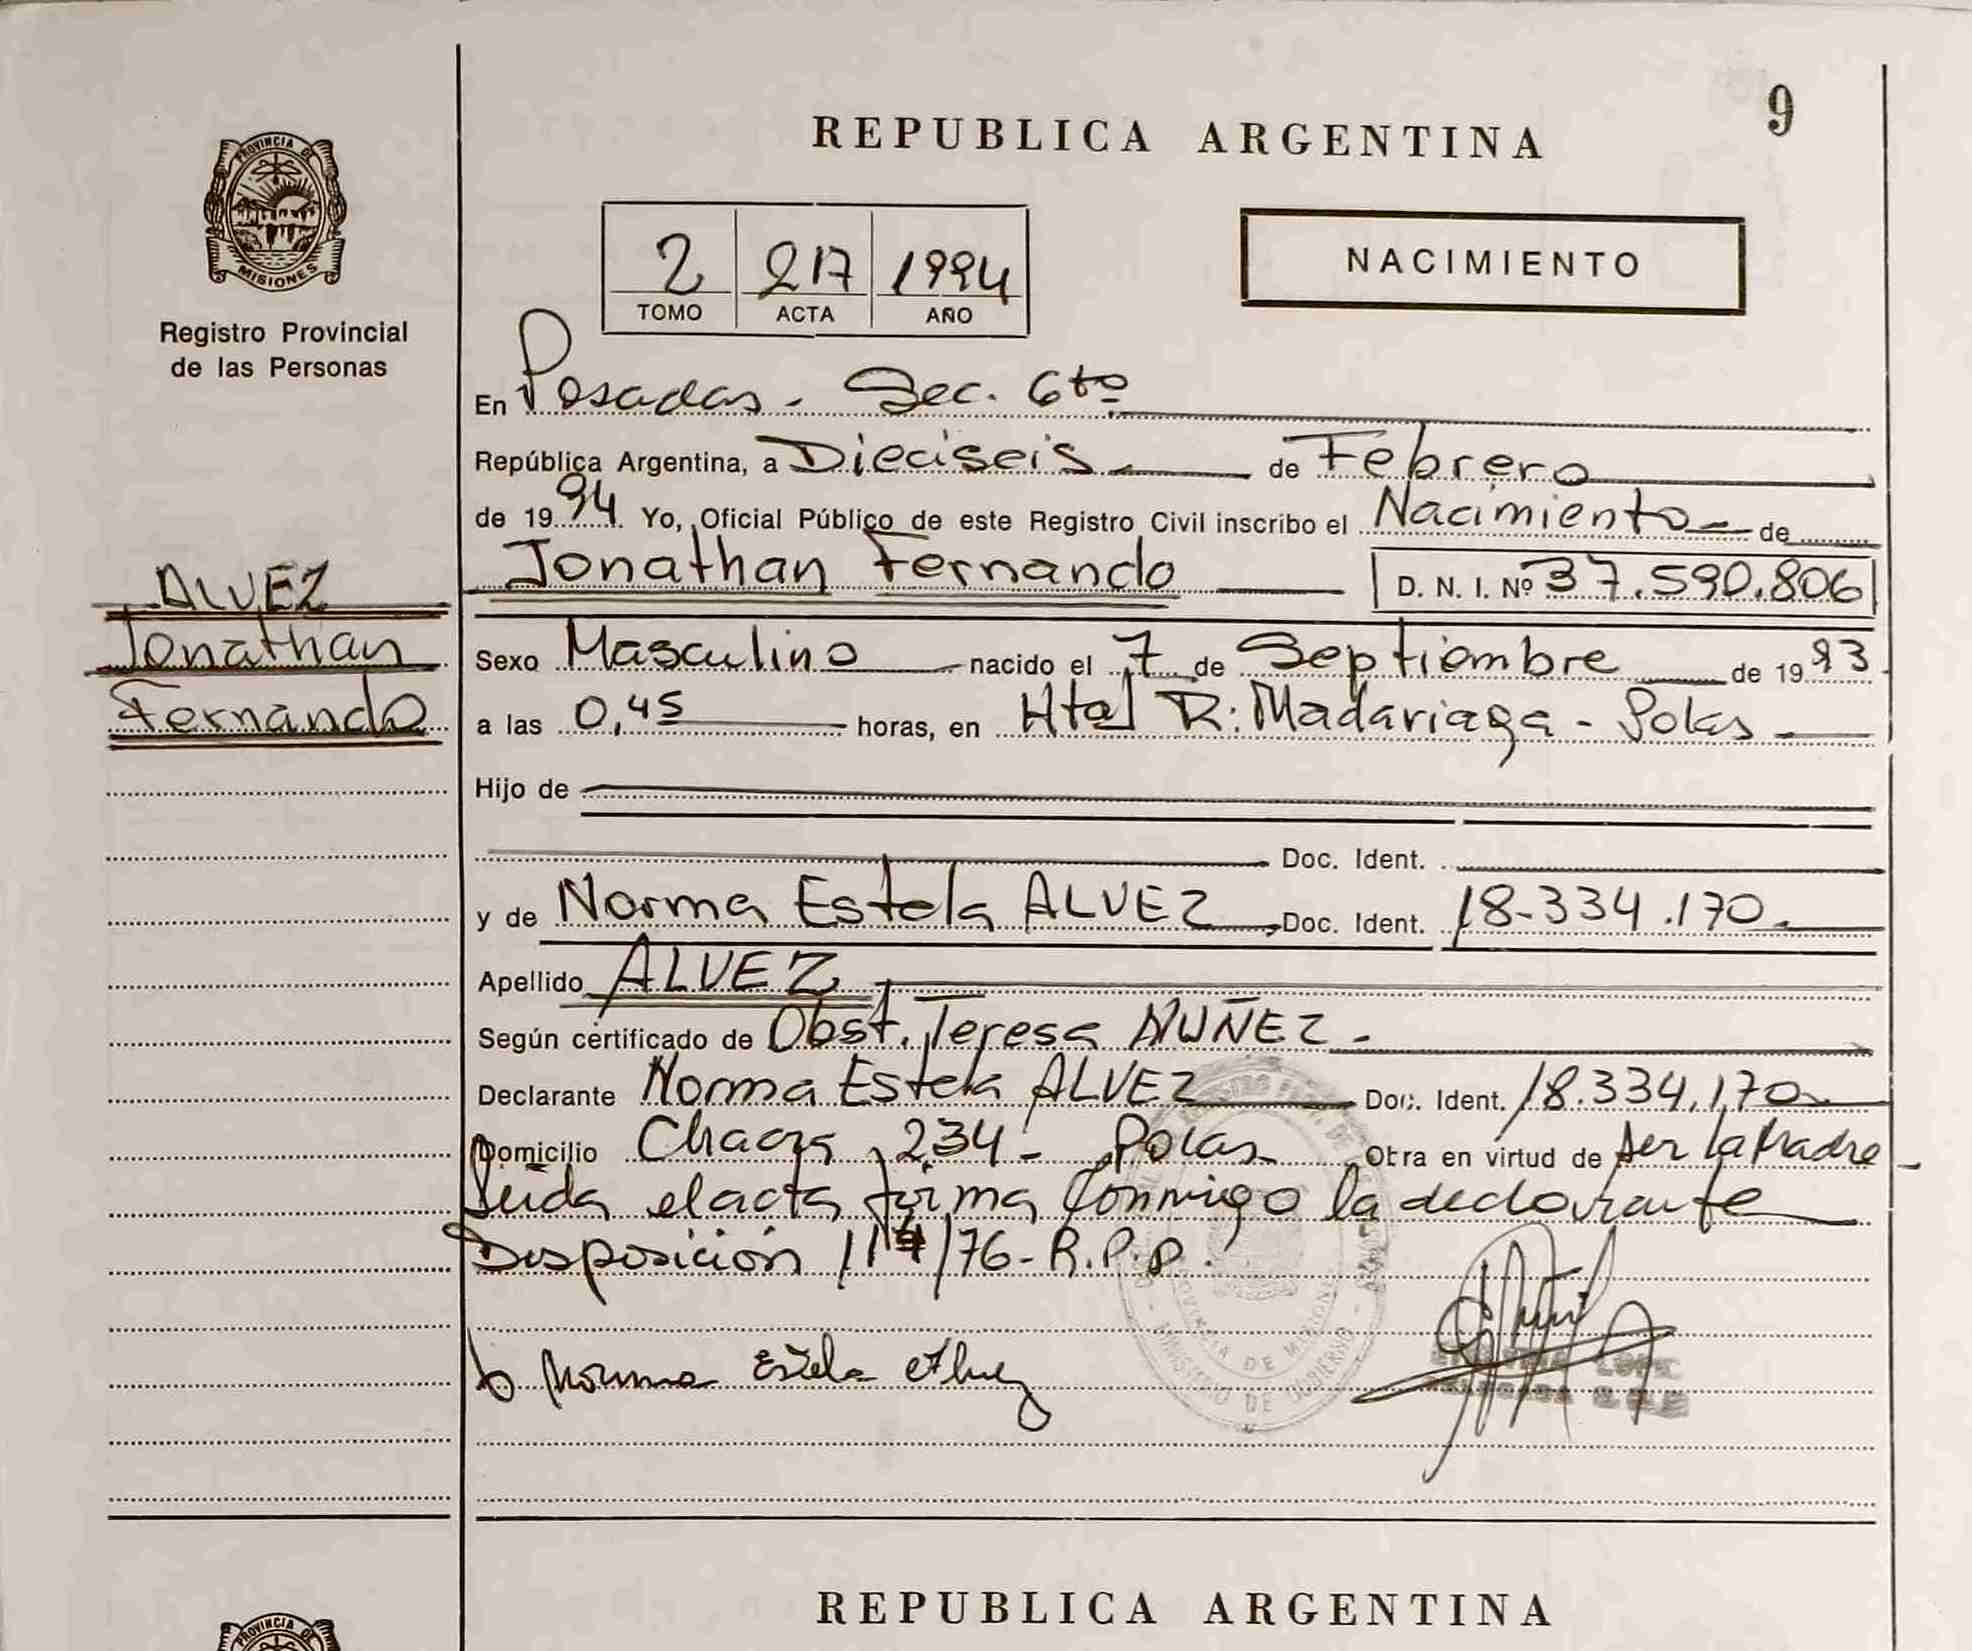 9
REPUBLICA ARGENTINA
PROVINCIA DE
MISIONES
Registro Provincial
de las Personas
2 217 1994
TOMO ACTA AÑO
NACIMIENTO
En Posadas - Sec. 6ta
República Argentina, a Dieciseis de Febrero
de 1994. Yo, Oficial Público de este Registro Civil inscribo el Nacimiento de
Jonathan Fernando D. N. I. Nº 37.590.806
ALVEZ
Jonathan
Fernando
Sexo Masculino nacido el 7 de Septiembre de 1993
a las 0,45 horas, en Htal R. Madariaga - Pdas
Hijo de
Doc. Ident.
y de Norma Estela ALVEZ Doc. Ident. 18-334.170.
Apellido ALVEZ
Según certificado de Obst. Teresa NUÑEZ.-
Declarante Norma Estela ALVEZ Doc. Ident. 18.334.170
Domicilio 234- Pdas Obra en virtud de ser la Madre
Leida el acta firma conmigo la declarante
Disposición /76-R.P.P.
Norma Estela Alvez
PROVINCIA DE MISIONES
MINISTERIO DE GOBIERNO
REPUBLICA ARGENTINA
PROVINCIA DE